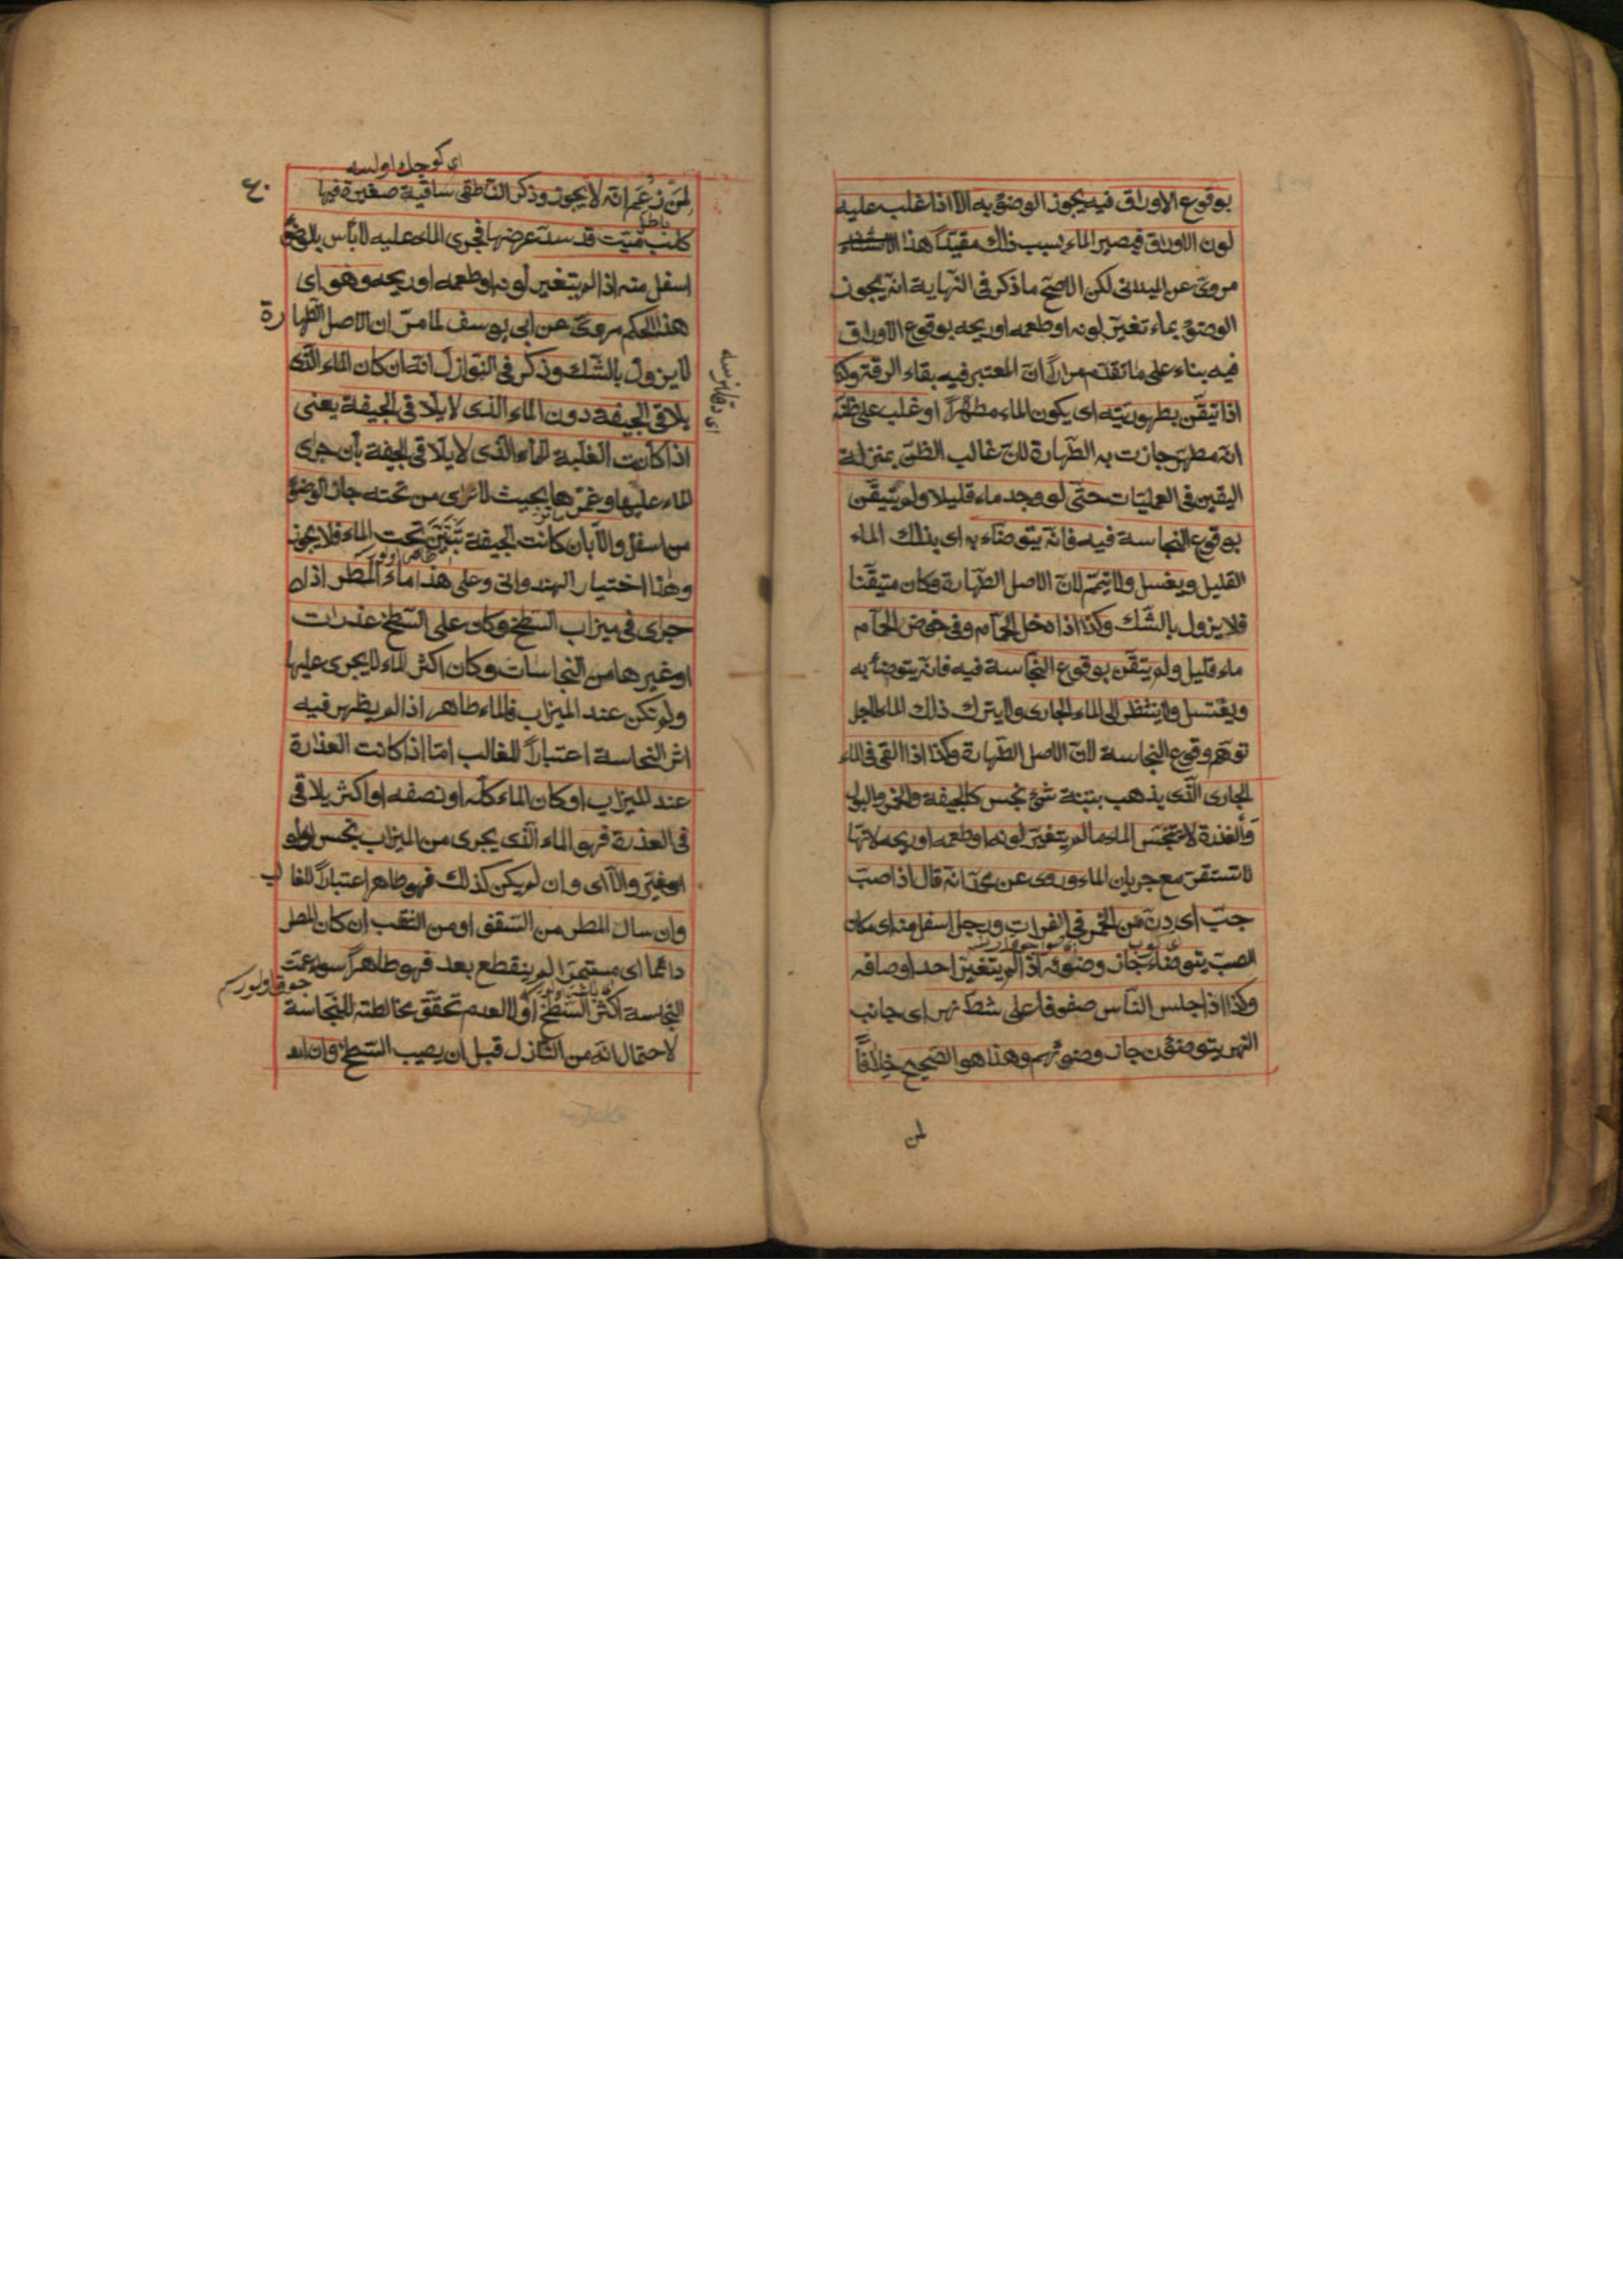 بوقوع الاوراق فيه يجوز الوضوء به الا اذا غلب عليه
لون الاوراق فيصير الماء بسبب ذلك مقيدًا هذا الاستثناء
مروى عن الميدانى لكن الاصح ما ذكر فى النهاية انه يجوز
الوضوء بماء تغير لونه او طعمه او ريحه بوقوع الاوراق
فيه بناء على ما تقدم مرارًا ان المعتبر فيه بقاء الرقة وكذا
اذا تيقن بطهوريته اى يكون الماء مطهرًا او غلب على ظنه
انه مطهر جازت به الطهارة لان غالب الظن بمنزلة
اليقين فى العمليات حتى لو وجد ماء قليلا ولم يتيقن
بوقوع النجاسة فيه فانه يتوضاء به اى بذلك الماء
القليل ويغسل ولا يتيمم لان الاصل الطهارة وكان متيقنا
فلا يزول بالشك وكذا اذا دخل الحمام وفى حوض الحمام
ماء قليل ولم يتقن بوقوع النجاسة فيه فانه يتوضأ به
ويغتسل ولا ينتظر الى الماء الجارى ولا يترك ذلك الماء لاجل
توهم وقوع النجاسة لان الاصل الطهارة وكذا اذا القى فى الماء
الجارى الذى يذهب بتبنة شئ نجس كالجيفة والخمر والبول
والعذرة لا يتنجس الماء ما لم يتغير لونه او طعمه او ريحه لانها
لا تستقر مع جريان الماء وروى عن محمد انه قال اذا صب
جب اى دن من الخمر فى الفرات ورجل اسفل منه اى مكان
الصب يتوضاء جاز وضوئه اذا لم يتغير احد اوصافه
وكذا اذا جلس الناس صفوفا على شط نهر اى جانب
النهر يتوضؤن جاز وضوئهم وهذا هو الصحيح خلافًا
لمن
اى كوچك اولسه
لمن زعم انه لا يجوز وذكر الناطقى ساقية صغيرة فيها
كلب ميت قد سد عرضها فجرى الماء عليه لا بأس بالوضوء
اسفل منه اذا لم يتغير لونه او طعمه او ريحه وهو اى
هذا الحكم مروى عن ابى يوسف لما مر ان الاصل الطهارة
لا يزول بالشك وذكر فى النوازل انه ان كان الماء الذى
يلاقى الجيفة دون الماء الذى لا يلاقى الجيفة يعنى
اذا كانت الغلبة للماء الذى لا يلاقى الجيفة بأن جرى
الماء عليها وغمرها بحيث لا ترى من تحته جاز الوضوء
من اسفل والا بان كانت الجيفة تتبين تحت الماء فلا يجوز
وهذا اختيار الهندوانى وعلى هذا ماء المطر اذا
جرى فى ميزاب السطح وكان على السطح عذرات
او غيرها من النجاسات وكان اكثر الماء لا يجرى عليها
ولم تكن عند الميزاب فالماء طاهر اذا لم يظهر فيه
اثر النجاسة اعتبارًا للغالب اما اذا كانت العذرة
عند الميزاب او كان الماء كله او نصفه او اكثر يلاقى
فى العذرة فهو الماء الذى يجرى من الميزاب نجس ولو
لم يتغير والا اى وان لم يكن كذلك فهو طاهر اعتبارًا للغالب
وان سال المطر من السقف او من النقب ان كان المطر
دائما اى مستمرا لم ينقطع بعد فهو طاهرًا سواء عمت
النجاسة اكثر السطح او لا لعدم تحقق مخالطته للنجاسة
لاحتمال انه من النازل قبل ان يصيب السطح وان لم